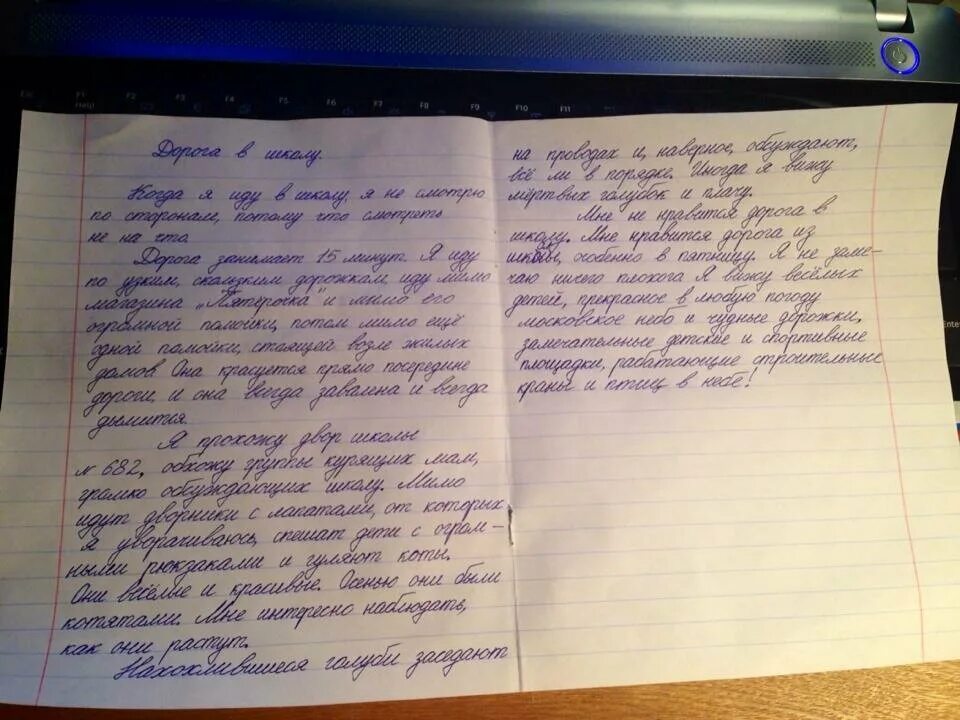 Дорога в школу.
Когда я иду в школу, я не смотрю
по сторонам, потому что смотреть
не на что.
Дорога занимает 15 минут. Я иду
по узким, скользким дорожкам, иду мимо
магазина „Пятёрочка" и мимо его
огромной помойки, потом мимо ещё
одной помойки, стоящей возле жилых
домов. Она красуется прямо посередине
дороги, и она всегда завалена и всегда
дымится.
Я прохожу двор школы
№ 682, обхожу группы курящих мам,
громко обсуждающих школу. Мимо
идут дворники с лапатами, от которых
я уворачиваюсь, спешат дети с огром-
ными рюкзаками и гуляют коты.
Они весёлые и красивые. Осенью они были
котятами. Мне интересно наблюдать,
как они растут.
Нахохлившиеся голуби заседают
на проводах и, наверное, обсуждают,
всё ли в порядке. Иногда я вижу
мёртвых голубок и плачу.
Мне не нравится дорога в
школу. Мне нравится дорога из
школы, особенно в пятницу. Я не заме-
чаю ничего плохога. Я вижу весёлых
детей, прекрасное в любую погоду
московское небо и чудные дорожки,
замечательные детские и спортивные
площадки, работающие строительные
краны и птиц в небе!
F1
F2
F3
F4
F5
F6
F7
F8
F9
F10
F11